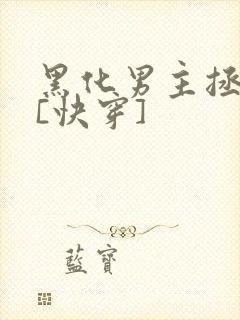 黑化男主拯
[快穿]
藍寶